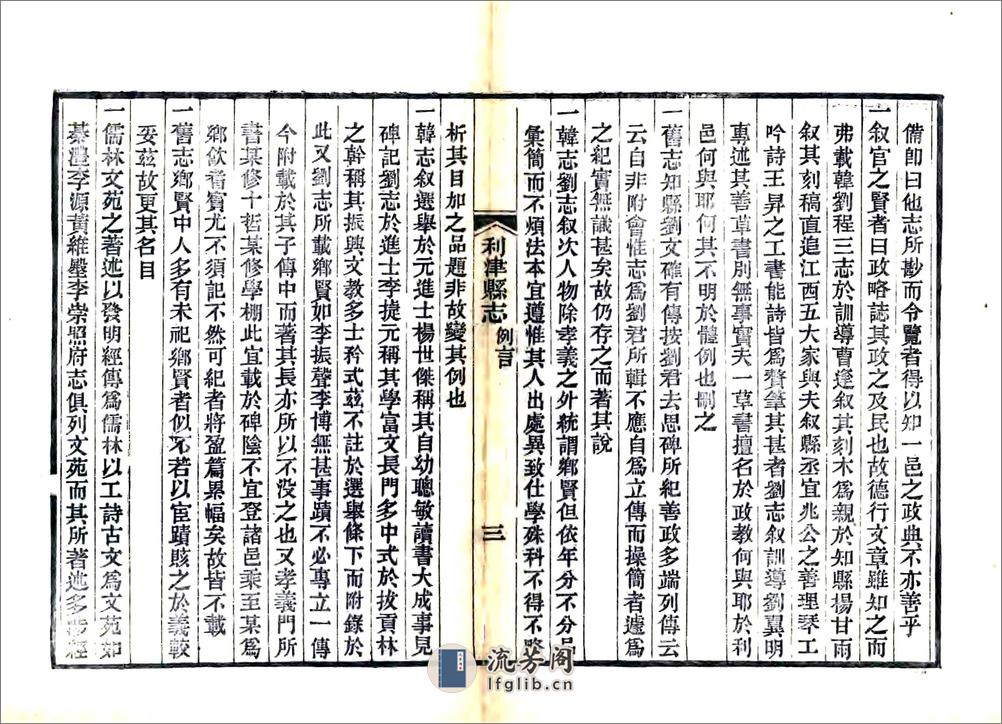 備卽曰他志所尠而令覽者得以知一邑之政典不亦善乎
一叙官之賢者曰政略誌其政之及民也故德行文章雖知之而
弗載韓劉程三志於訓導曹逢叙其刻木爲親於知縣楊甘雨
叙其刻稿直追江西五大家與夫叙縣丞宜兆公之善理琴工
吟詩王昇之工書能詩皆爲贅筆其甚者劉志叙訓導劉翼明
專述其善草書別無事實夫一草書擅名於政教何與耶於利
邑何與耶何其不明於體例也刪之
一舊志知縣劉文確有傳按劉君去思碑所紀善政多端列傳云
云自非附會惟志爲劉君所輯不應自爲立傳而操簡者遽爲
之紀實無識甚矣故仍存之而著其說
一韓志劉志叙次人物除孝義之外統謂鄉賢但依年分不分品
彙簡而不煩法本宜遵惟其人出處異致仕學殊科不得不略
利津縣志 例言
三
析其目加之品題非故變其例也
一韓志叙選舉於元進士楊世傑稱其自幼聰敏讀書大成事見
碑記劉志於進士李捷元稱其學富文長門多中式於拔貢林
之幹稱其振興文教多士矜式茲不註於選舉條下而附錄於
此又劉志所載鄉賢如李振聲李博無甚事蹟不必專立一傳
今附載於其子傳中而著其長亦所以不没之也又孝義門所
書某修十哲某修學棚此宜載於碑陰不宜登諸邑乘至某爲
鄉飲耆賓尤不須記不然可紀者將盈篇累幅矣故皆不載
一舊志鄉賢中人多有未祀鄉賢者似不若以宦蹟賅之於義較
妥茲故更其名目
一儒林文苑之著述以發明經傳爲儒林以工詩古文爲文苑如
綦澧李源黃維壂李崇照府志俱列文苑而其所著述多涉經
流芳阁
lfglib.cn